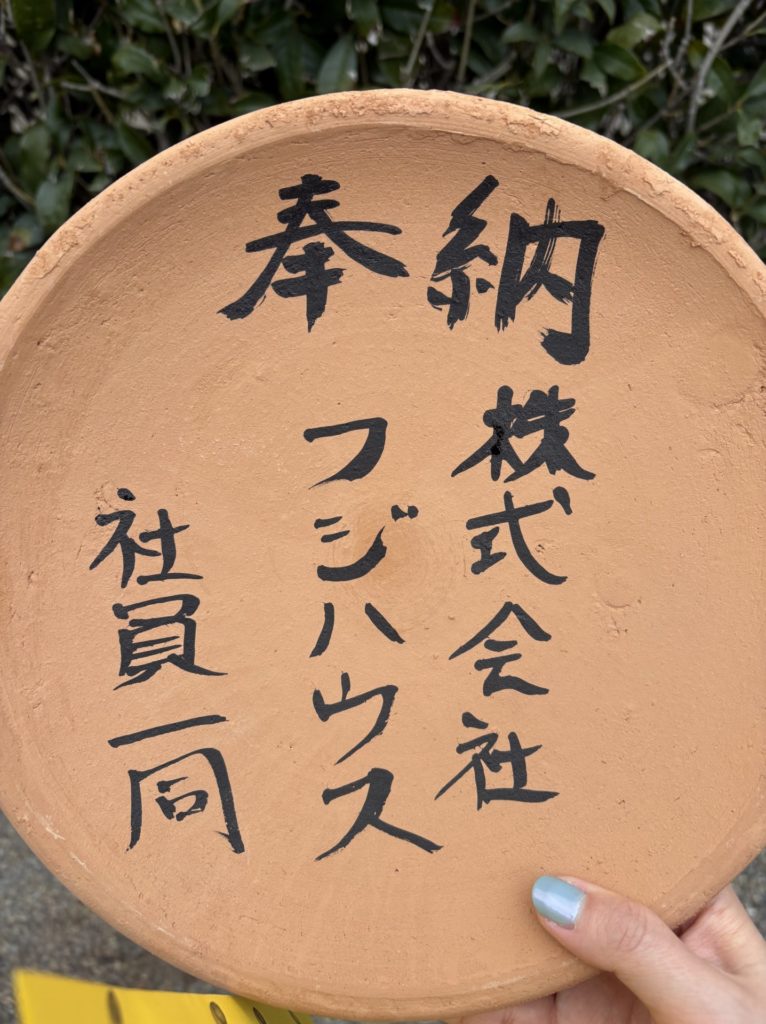 奉納
株式会社
フジハウス
社員一同